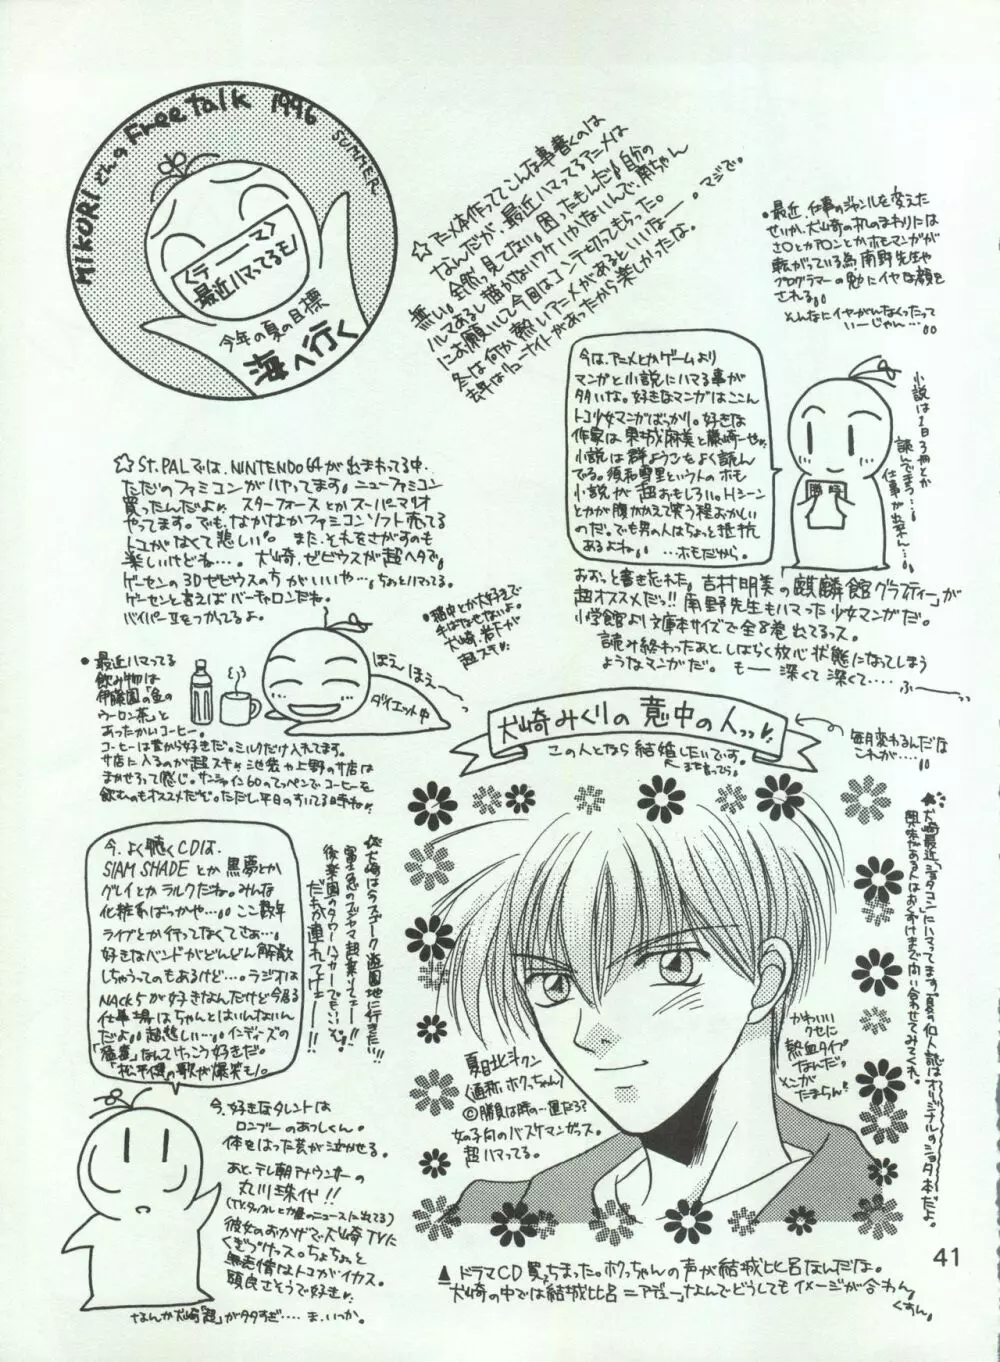 MIKURIどんの Free talk 1996 SUMMER
〈テーマ〉
最近ハマってるモノ
今年の夏の目標
海へ行く
☆アニメ本作っててこんな事書くのは
なんだが、最近ハマってるアニメは
全然っ見てない。困ったもんだ。自分の
無い。
にお願いして今回はコンテ切ってもらった。
冬は何か熱いアニメがあるといいなー。マジで。
去年はリューナイトがあったから楽しかったな。
・最近、仕事のジャンルを変えた
せいか、犬崎の机のまわりには
転がっている為、南野先生や
プログラマーの勉にイヤな顔を
される。
そんなにイヤがんなくったって
いーじゃん…
今は、アニメとかゲームより
マンガと小説にハマる事が
多いな。好きなマンガはここん
トコ少女マンガばっかり。好きな
作家は果城麻美と藤崎一也。
小説は群ようこをよく読ん
でる。須和雪里という人のホモ
小説が超おもしろい。Hシーン
とかが腹かかえて笑う程おかしい
のだ。でも男の人はちょっと抵抗
あるよね。…ホモだから。
小説は1日3冊とか
読んでまう…
仕事が出来ん…
おおっと書き忘れた。吉村明美の「麒麟館グラフティー」が
超オススメだっ!!南野先生もハマった少女マンガだ。
小学館より文庫本サイズで全8巻出てるっス。
読み終わったあと、しばらく放心状態になってしまう
ようなマンガだ。もー深くて深くて…ふーーっ
☆St.PALでは、NINTENDO64が出まわってる中、
ただのファミコンがハヤってます。ニューファミコン
買ったんだよ。スターフォースとかスーパーマリオ
やってます。でも、なかなかファミコンソフト売てる
トコがなくて悲しい。また、それをさがすのも
楽しいけどね…。犬崎、ゼビウスが超ヘタで。
ゲーセンの3Dゼビウスの方がいいや…ちょっとハマってる。
ゲーセンと言えばバーチャロンだね。
バイパーⅡをつかってるよ。
・稲中とか大好きで
手ばなせないよ。
犬崎、岩下が
超スキ
ほえ〜 ほえ〜
ダイエット中
・最近ハマってる
飲み物は
伊藤園「金の
ウーロン茶」と
あったかいコーヒー。
コーヒーは昔から好きだ。ミルクだけ入れてます。
サ店に入るのが超スキ。池袋や上野のサ店は
まかせろって感じ。サンシャイン60のてっぺんでコーヒーを
飲むのもオススメだぞ。ただし平日のすいてる時ね。
犬崎みくりの意中の人っっ
この人となら結婚したいです。
まだ言ってら。
毎月変わるんだな
これが…
今、よく聴くCDは、
SIAM SHADEとか黒夢とか
グレイとかラルクだね。みんな
化粧系ばっかや…ここ数年
ライブとか行ってなくてさぁ…
好きなバンドがどんどん解散
しちゃうってのもあるけど…。ラジオは
NACK5が好きなんだけど今居る
仕事場はちゃんとはいんないん
だよ。超悲しい…。インディーズの
なんてけっこう好きだ。
「松平健」の歌が爆笑モノ。
☆犬崎はらスゴーク遊園地に行きたい!!
後楽園のタワーハッカーでもいいぞ。
だれか連れてけー!!
☆犬崎最近「ショタコン」にハマってます。夏の個人誌はオリジナルのショタ本だよ。
興味がある人はお気軽に問い合わせてみてくれ。
夏目北斗クン
(通称、ホクっちゃん)
©勝負は時の…運だろ?
女の子向のバスケマンガっス。
超ハマってる。
かわいい
クセに
熱血タイプ
なんだっ。
そこが
たまらん。
今、好きなタレントは
ロンブーのあつしくん。
体をはった芸が泣かせる。
あと、テレ朝アナウンサーの
丸川珠代!!
(TVタックルとか昼のニュースに出てる)
彼女のおかげで犬崎TVに
くぎづけっス。ちょちょっと
無表情なトコがイカス。
頭良さそうで好き
なんか犬崎「超」が多すぎ…ま、いっか。
▲ドラマCD買っちまった。ホクっちゃんの声が結城比呂なんだな。
犬崎の中では「結城比呂=アデュー」なんでどうしてもイメージが合わん。
くすん。
41